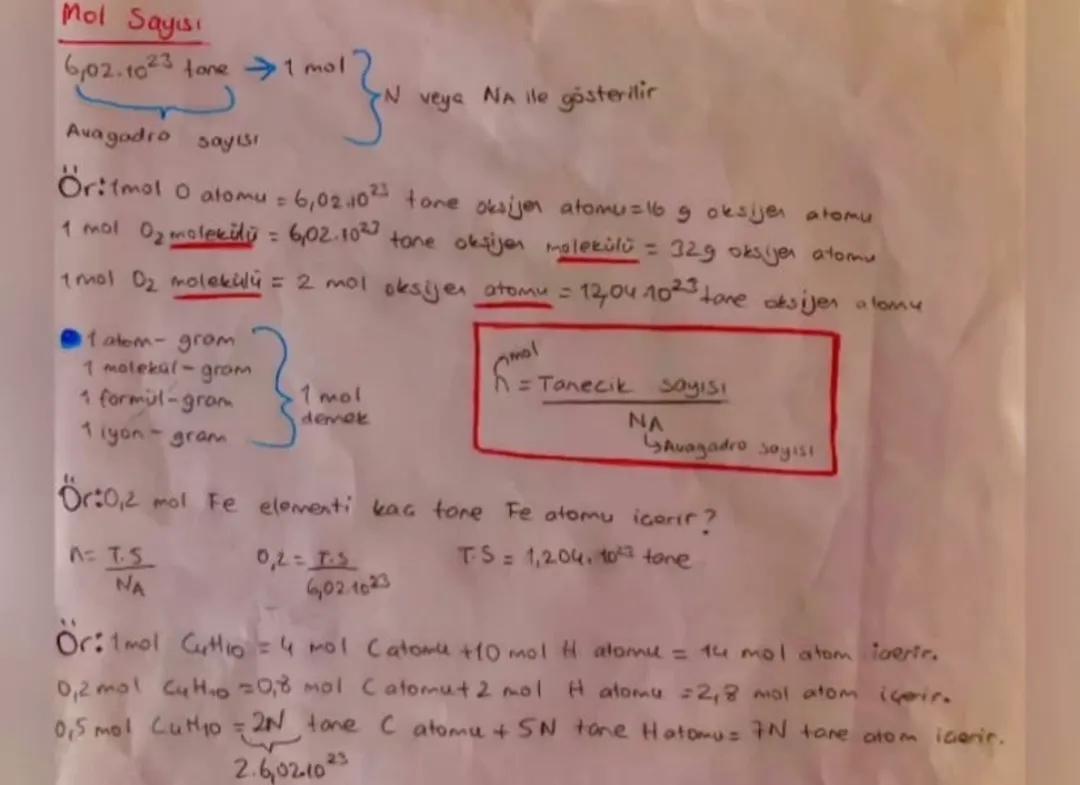 Mol Sayısı
6,02.10²³ tane → 1 mol
N veya NA ile gösterilir
Avagadro sayısı
Ör: 1mol O atomu = 6,02.10²³ tane oksijen atomu = 16 g oksijen atomu
1 mol O₂ molekülü = 6,02.10²³ tane oksijen molekülü = 32g oksijen atomu
1 mol O₂ molekülü = 2 mol oksijen atomu = 12,04.10²³ tane oksijen atomu
1 atom - gram
1 molekül - gram
1 formül - gram
1 iyon - gram
1 mol demek
mol
n = Tanecik sayısı
NA
↳ Avagadro sayısı
Ör: 0,2 mol Fe elementi kaç tane Fe atomu içerir?
n = T.S / NA 0,2 = T.S / 6,02.10²³ T.S = 1,204.10²³ tane
Ör: 1mol C₄H₁₀ = 4 mol C atomu + 10 mol H atomu = 14 mol atom içerir.
0,2 mol C₄H₁₀ = 0,8 mol C atomu + 2 mol H atomu = 2,8 mol atom içerir.
0,5 mol C₄H₁₀ = 2N tane C atomu + 5N tane H atomu = 7N tane atom içerir.
2.6,02.10²³